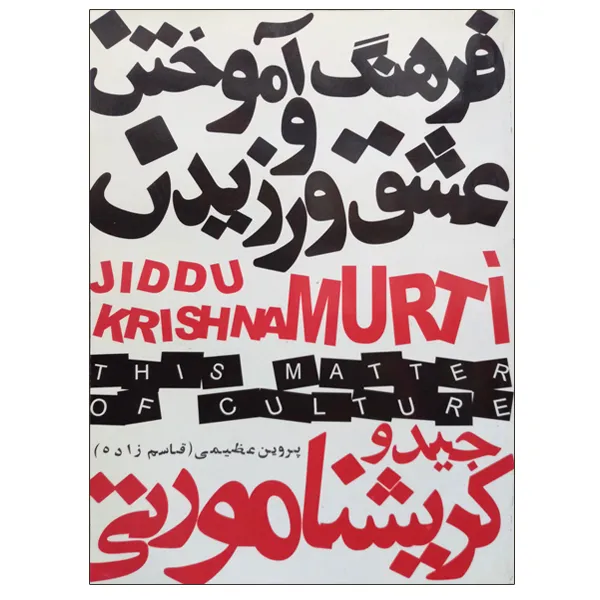 فرهنگ آموختن
و
عشق ورزیدن
JIDDU
KRISHNAMURTi
THIS MATTER
OF CULTURE
جیدو
پروین عظیمی (قاسم زاده)
کریشنا مورتی